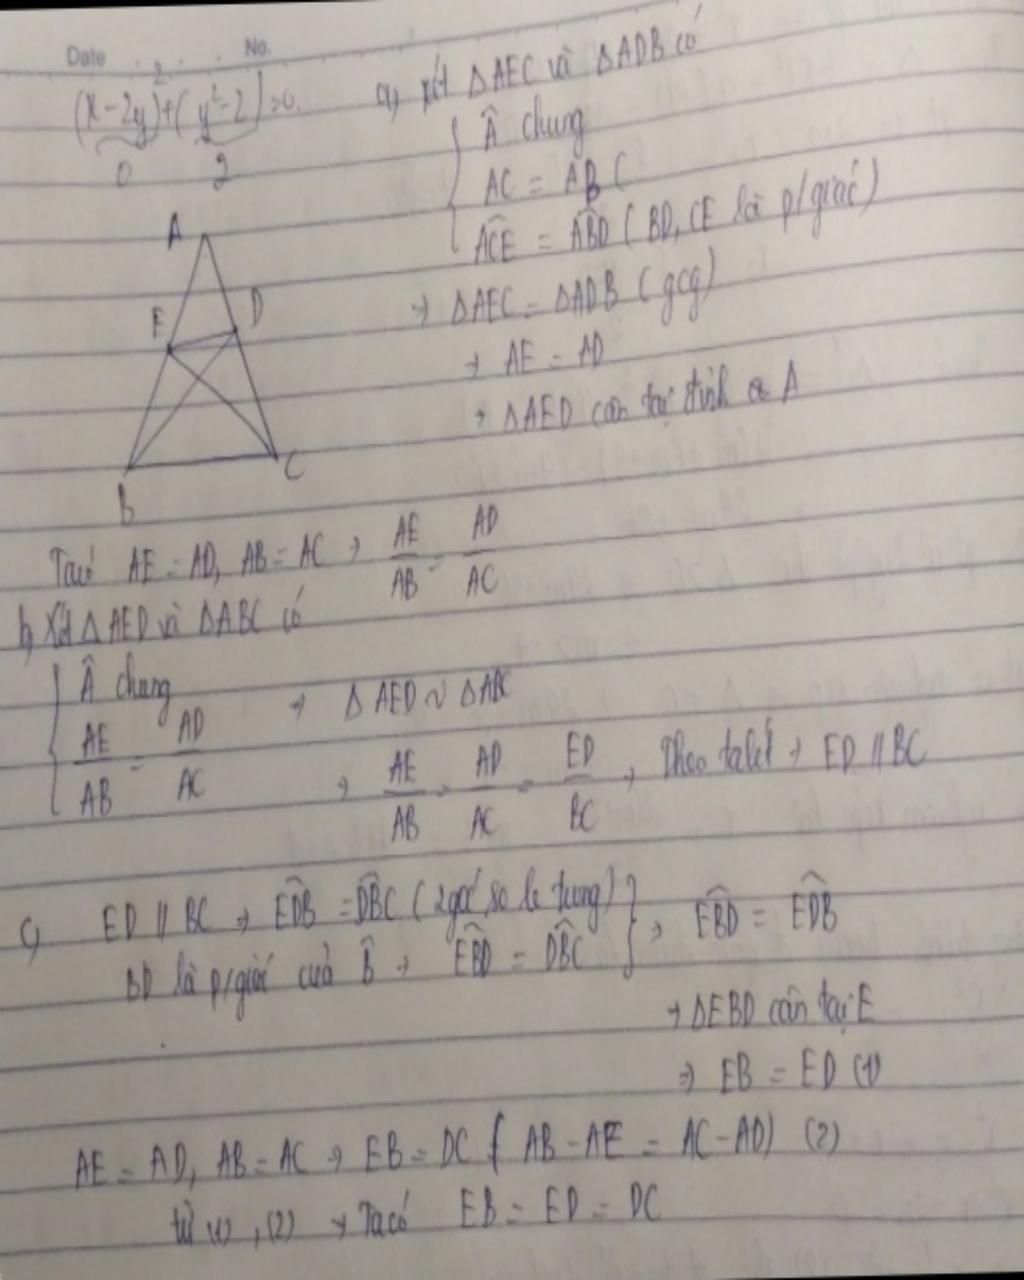 Date No.
(x-2y)²+(y²-2)=0.
0 2
a, xét ΔAEC và ΔADB có
Â chung
AC = AB (
ACE = ABD ( BD, CE là p/giác )
→ ΔAEC = ΔADB ( gcg )
→ AE = AD
→ ΔAED cân tại đỉnh A
A
E D
B C
Ta có AE = AD, AB = AC → AE/AB = AD/AC
b, Xét ΔAED và ΔABC có
Â chung → ΔAED ~ ΔABC
AE/AB = AD/AC → AE/AB = AD/AC = ED/BC, Theo talet → ED // BC
c, ED // BC → EDB = DBC ( 2 góc so le trung ) } → EBD = EDB
BD là p/giác của B̂ → EBD = DBC
→ ΔEBD cân tại E
→ EB = ED (1)
AE = AD, AB = AC → EB = DC ( AB - AE = AC - AD) (2)
từ (1), (2) → Ta có EB = ED = DC